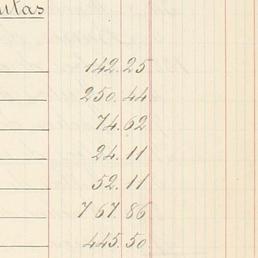 142.25
250.44
74.62
24.11
52.11
767.86
445.50